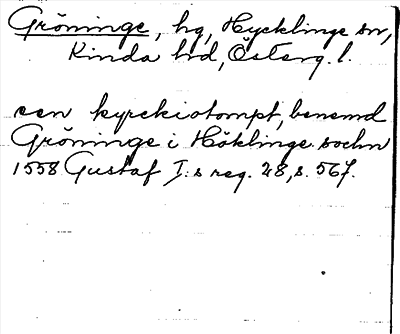 Gröninge, hg, Hycklinge sn,
Kinda hd, Österg. l.
een kyrckiotompt, benemd
Gröninge i Höklinge sochn
1558 Gustaf I:s reg. 28, s. 567.